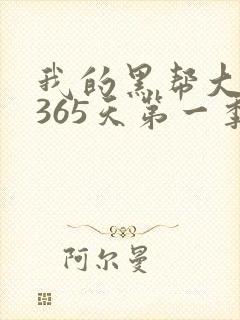 我的黑帮大
365天第一季
阿尔曼